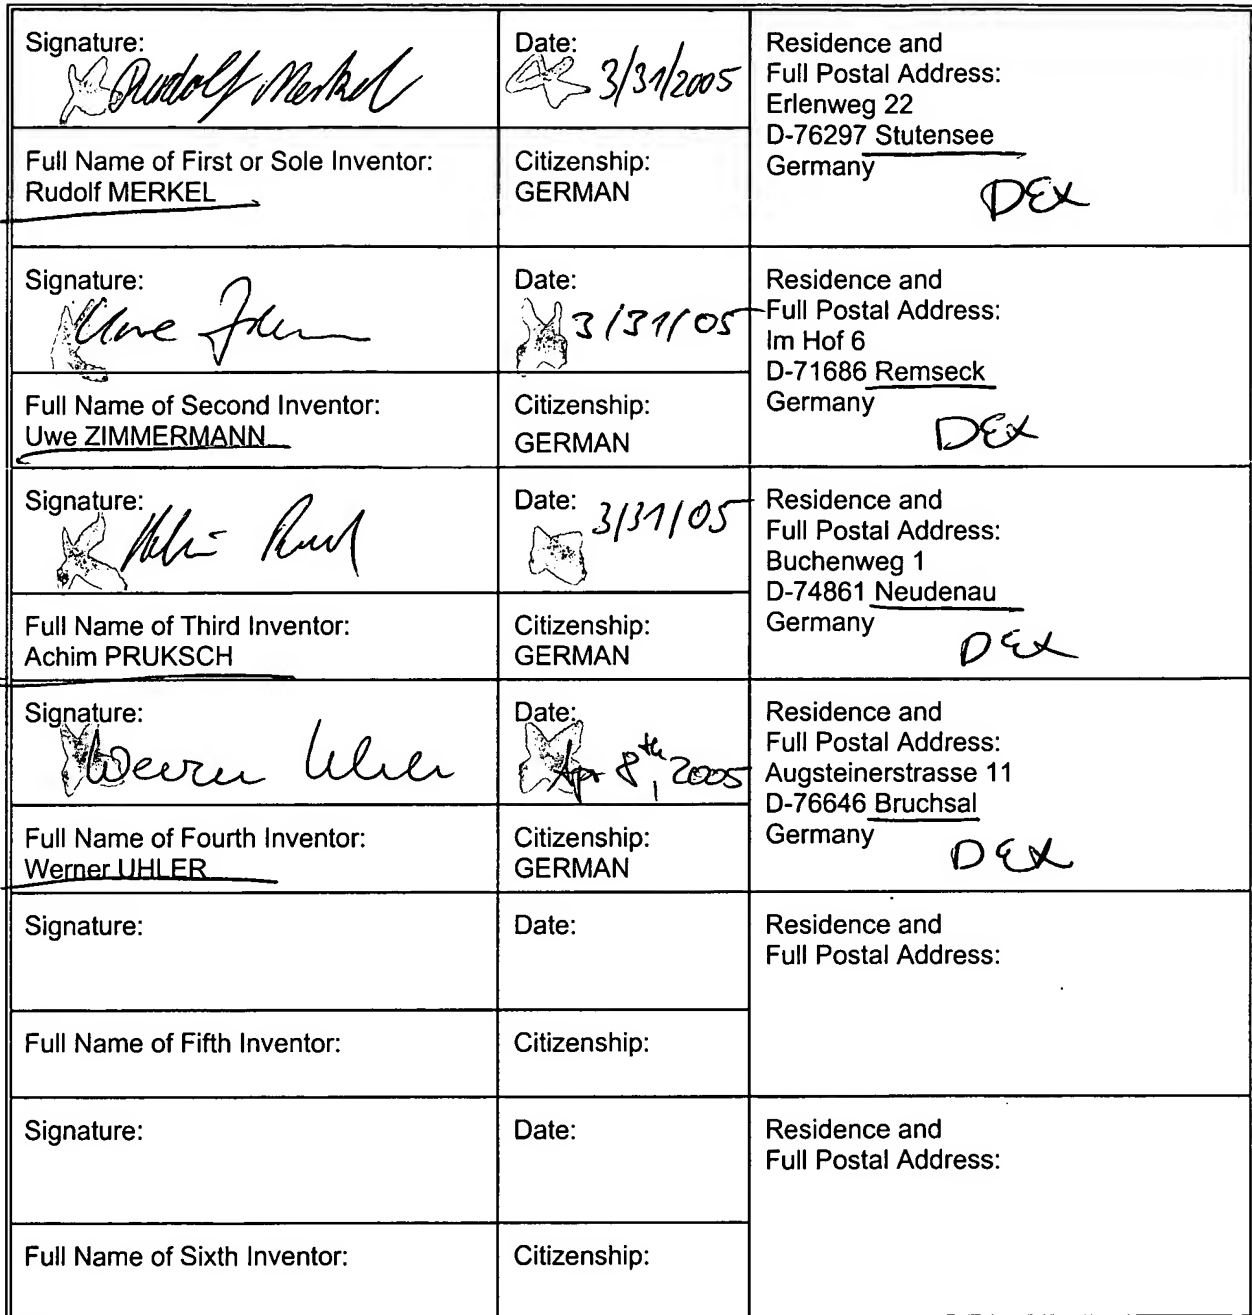 Signature:
Rudolf Merkel
Date:
3/31/2005
Residence and
Full Postal Address:
Erlenweg 22
D-76297 Stutensee
Germany
DEX
Full Name of First or Sole Inventor:
Rudolf MERKEL
Citizenship:
GERMAN
Signature:
Uwe
Date:
3/31/05
Residence and
Full Postal Address:
Im Hof 6
D-71686 Remseck
Germany
DEX
Full Name of Second Inventor:
Uwe ZIMMERMANN
Citizenship:
GERMAN
Signature:
Date:
3/31/05
Residence and
Full Postal Address:
Buchenweg 1
D-74861 Neudenau
Germany
DEX
Full Name of Third Inventor:
Achim PRUKSCH
Citizenship:
GERMAN
Signature:
Werner Uhler
Date:
Apr 8th, 2005
Residence and
Full Postal Address:
Augsteinerstrasse 11
D-76646 Bruchsal
Germany
DEX
Full Name of Fourth Inventor:
Werner UHLER
Citizenship:
GERMAN
Signature:
Date:
Residence and
Full Postal Address:
Full Name of Fifth Inventor:
Citizenship:
Signature:
Date:
Residence and
Full Postal Address:
Full Name of Sixth Inventor:
Citizenship: